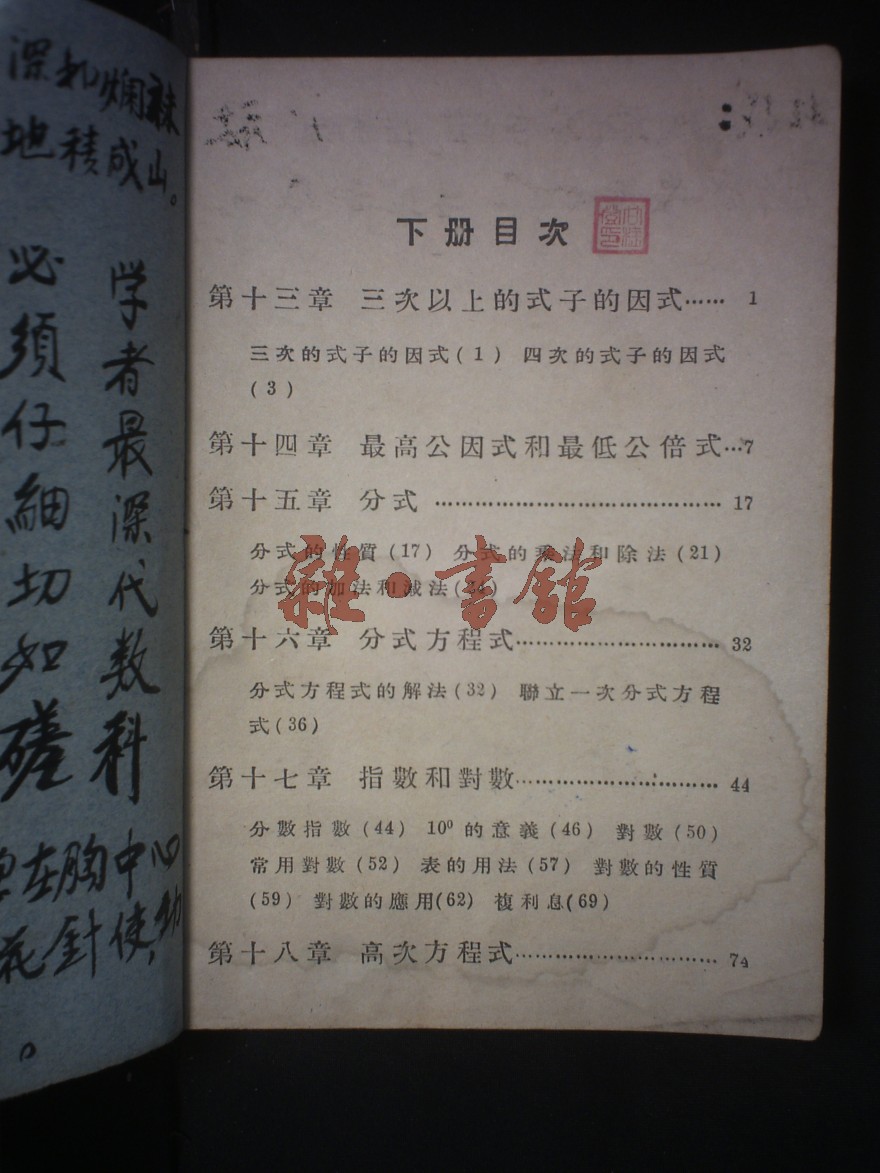 深
地積成山。
学者最深代数科
必須仔細切如磋
在胸中心
花針使，
。
下册目次
第十三章 三次以上的式子的因式…… 1
三次的式子的因式(1) 四次的式子的因式
(3)
第十四章 最高公因式和最低公倍式…7
第十五章 分式 …………………………………… 17
分式的性質(17) 分式的乘法和除法(21)
分式的加法和減法(24)
雜·書館
第十六章 分式方程式………………………… 32
分式方程式的解法(32) 聯立一次分式方程
式(36)
第十七章 指數和對數………………………… 44
分數指數(44) 10⁰的意義(46) 對數(50)
常用對數(52) 表的用法(57) 對數的性質
(59) 對數的應用(62) 複利息(69)
第十八章 高次方程式………………………… 74